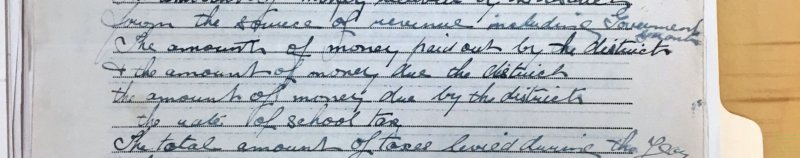 amount of money received by the
from the source of revenue including Government grant
The amounts of money paid out by the districts
& the amount of money due the district
the amount of money due by the districts
the rate of school tax
The total amount of taxes levied during the Year